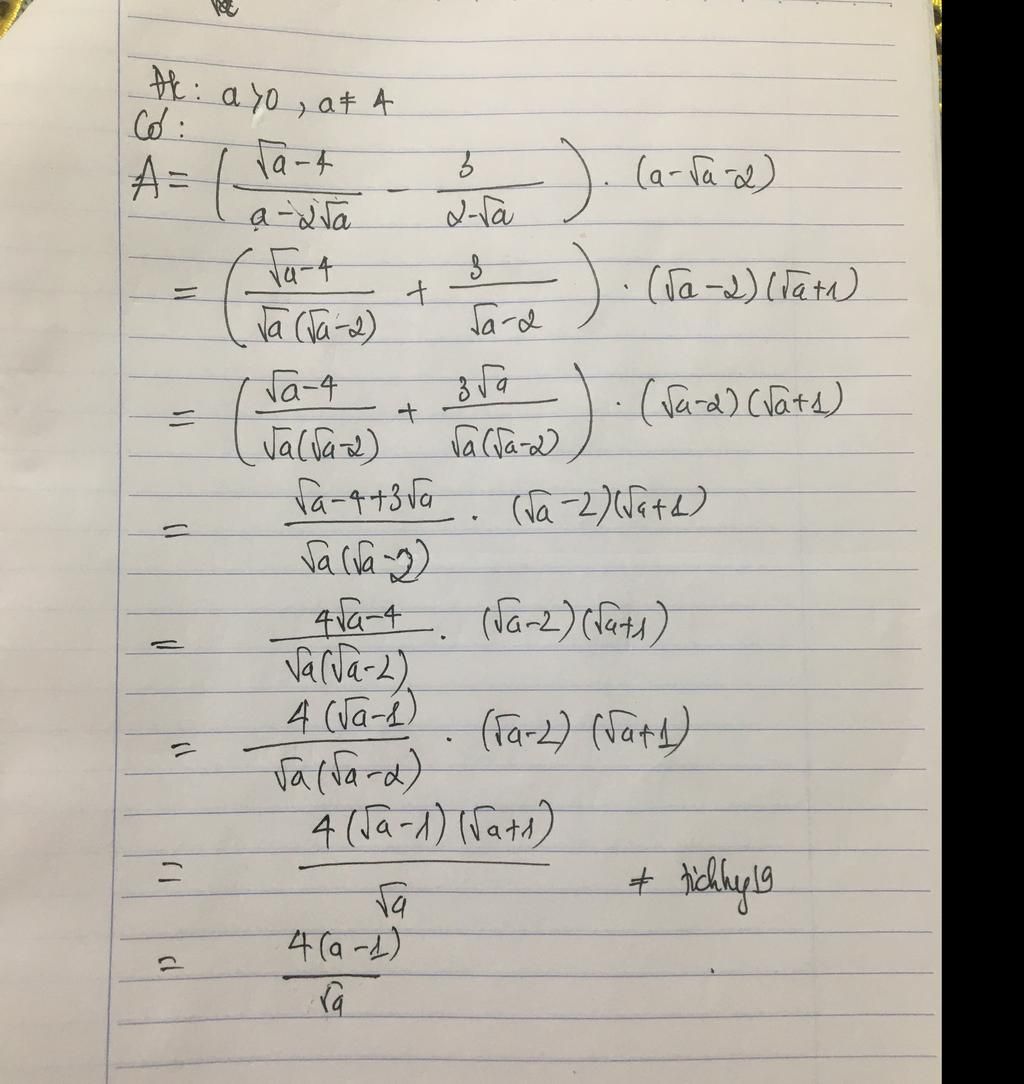 Đk: a>0, a≠4
Có:
A = ( (√a-4)/(a-2√a) - 3/(2-√a) ) . (a-√a-2)
= ( (√a-4)/(√a(√a-2)) + 3/(√a-2) ) . (√a-2)(√a+1)
= ( (√a-4)/(√a(√a-2)) + 3√a/(√a(√a-2)) ) . (√a-2)(√a+1)
= (√a-4+3√a)/(√a(√a-2)) . (√a-2)(√a+1)
= (4√a-4)/(√a(√a-2)) . (√a-2)(√a+1)
= 4(√a-1)/(√a(√a-2)) . (√a-2)(√a+1)
= 4(√a-1)(√a+1)/√a
= 4(a-1)/√a